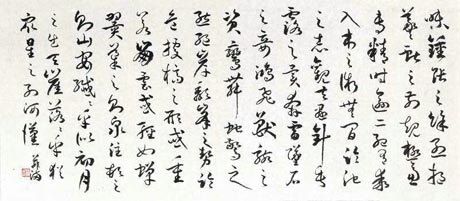 味鍾張之餘烈挹
羲獻之前規極慮
專精時逾二紀有乖
入木之術無間臨池
之志觀夫懸針垂
露之異奔雷墜石
之奇鴻飛獸駭之
資鸞舞蛇驚之
態絕岸頹峯之勢臨
危據槁之形或重
若崩雲或輕如蟬
翼導之則泉注頓之
則山安纖纖乎似初月
之出天崖落落乎猶
眾星之列河漢